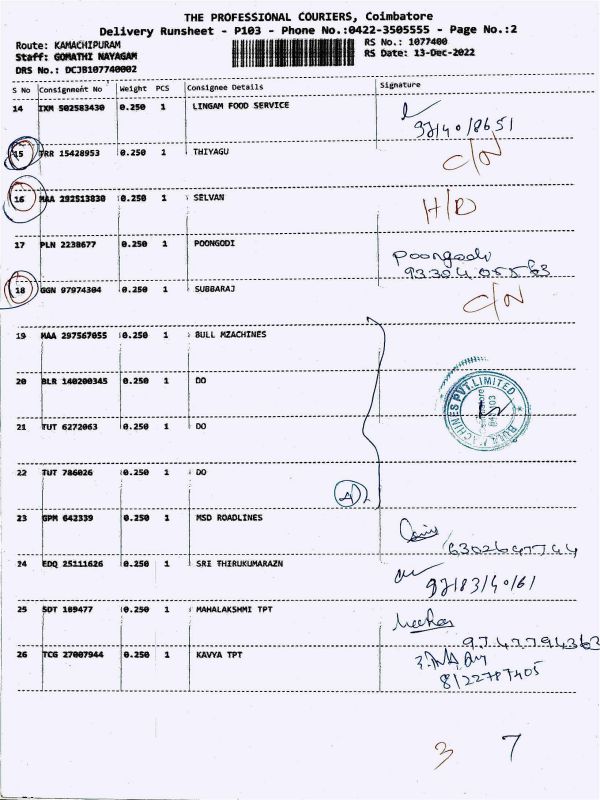 THE PROFESSIONAL COURIERS, Coimbatore
Delivery Runsheet - P103 - Phone No.:0422-3505555 - Page No.:2
Route: KAMACHIPURAM
RS No.: 1077400
Staff: GOMATHI NAYAGAM
RS Date: 13-Dec-2022
DRS No.: DCJB107740002
S No Consignment No Weight PCS Consignee Details Signature
14 IXM 502583430 0.250 1 LINGAM FOOD SERVICE
15 TRR 15428953 0.250 1 THIYAGU C/N
16 MAA 292513830 0.250 1 SELVAN H/D
17 PLN 2238677 0.250 1 POONGODI Poongodi
18 GGN 97974304 0.250 1 SUBBARAJ C/N
19 MAA 297567055 0.250 1 BULL MZACHINES
20 BLR 140200345 0.250 1 DO
21 TUT 6272063 0.250 1 DO
22 TUT 786026 0.250 1 DO
23 GPM 642339 0.250 1 MSD ROADLINES
6302647744
24 EDQ 25111626 0.250 1 SRI THIRUKUMARAZN
25 SDT 189477 0.250 1 MAHALAKSHMI TPT
9747794363
26 TCG 27007944 0.250 1 KAVYA TPT
8122787405
3 7